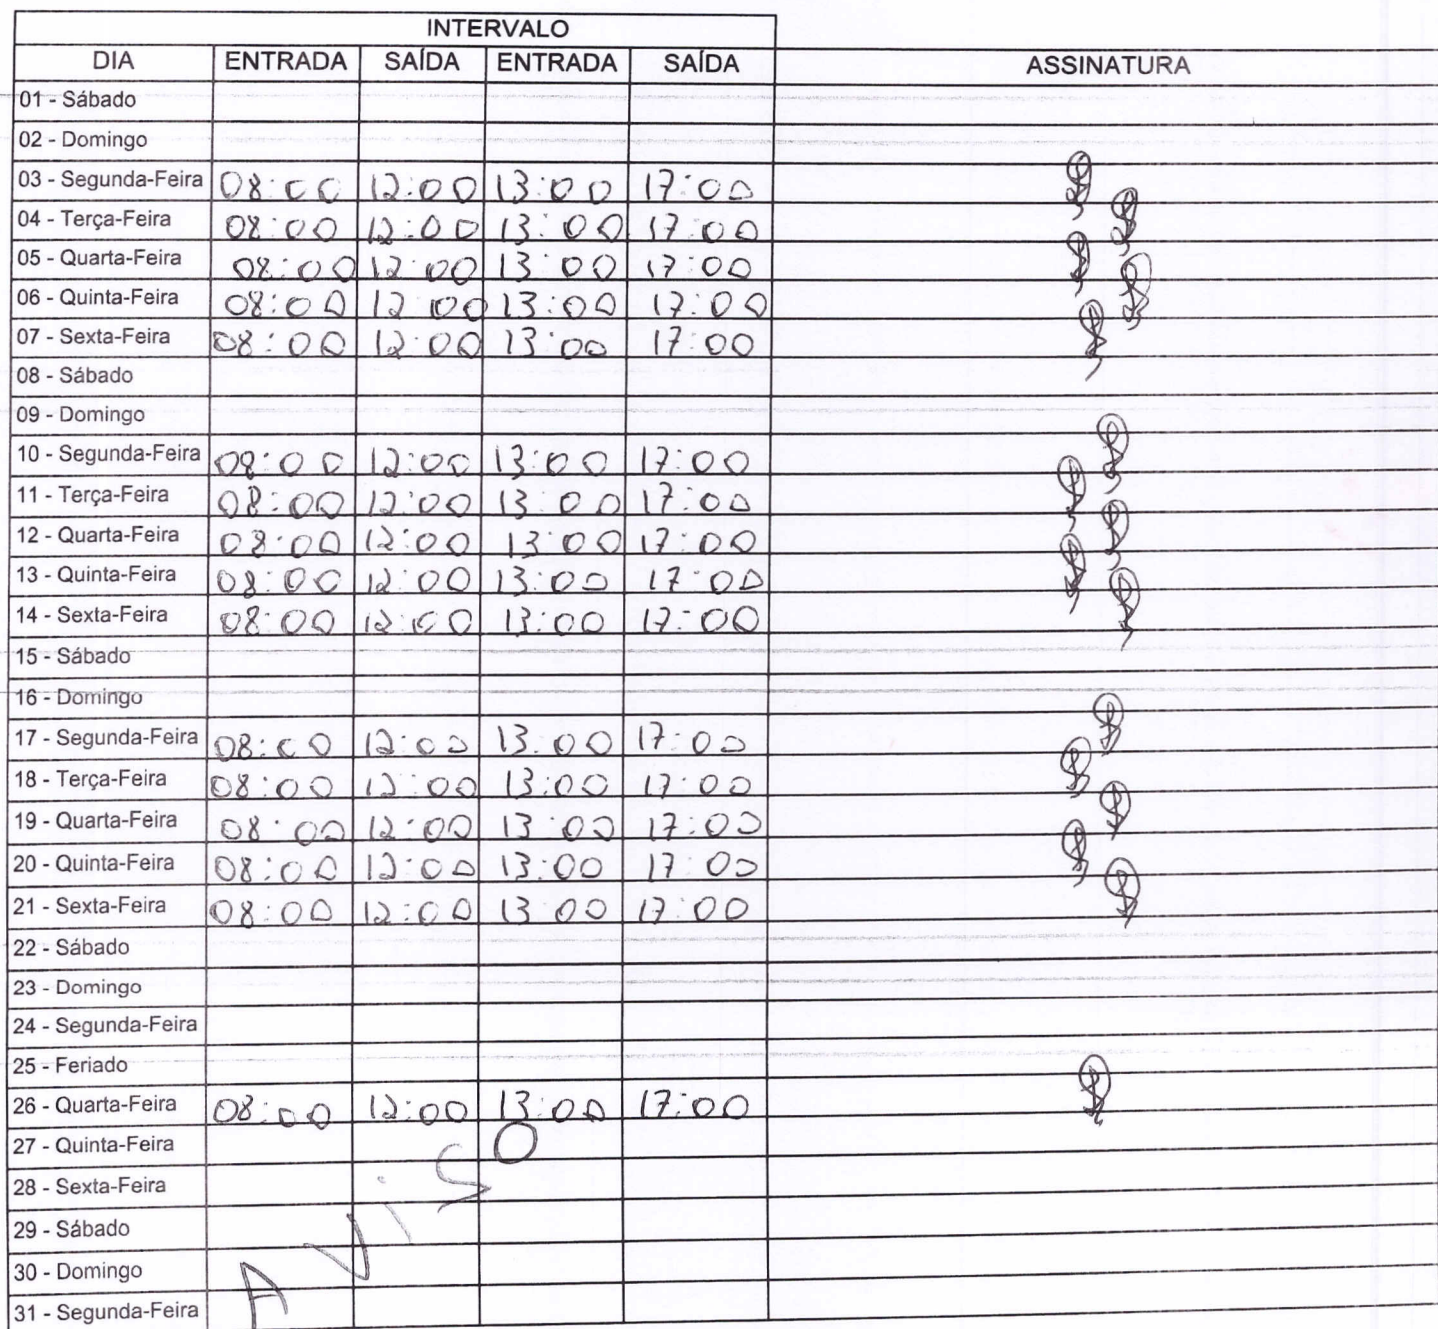 INTERVALO
DIA ENTRADA SAÍDA ENTRADA SAÍDA ASSINATURA
01 - Sábado
02 - Domingo
03 - Segunda-Feira 08:00 12:00 13:00 17:00
04 - Terça-Feira 08:00 12:00 13:00 17:00
05 - Quarta-Feira 08:00 12:00 13:00 17:00
06 - Quinta-Feira 08:00 12:00 13:00 17:00
07 - Sexta-Feira 08:00 12:00 13:00 17:00
08 - Sábado
09 - Domingo
10 - Segunda-Feira 08:00 12:00 13:00 17:00
11 - Terça-Feira 08:00 12:00 13:00 17:00
12 - Quarta-Feira 08:00 12:00 13:00 17:00
13 - Quinta-Feira 08:00 12:00 13:00 17:00
14 - Sexta-Feira 08:00 12:00 13:00 17:00
15 - Sábado
16 - Domingo
17 - Segunda-Feira 08:00 12:00 13:00 17:00
18 - Terça-Feira 08:00 12:00 13:00 17:00
19 - Quarta-Feira 08:00 12:00 13:00 17:00
20 - Quinta-Feira 08:00 12:00 13:00 17:00
21 - Sexta-Feira 08:00 12:00 13:00 17:00
22 - Sábado
23 - Domingo
24 - Segunda-Feira
25 - Feriado
26 - Quarta-Feira 08:00 12:00 13:00 17:00
27 - Quinta-Feira
28 - Sexta-Feira
29 - Sábado
30 - Domingo
31 - Segunda-Feira
AViSO